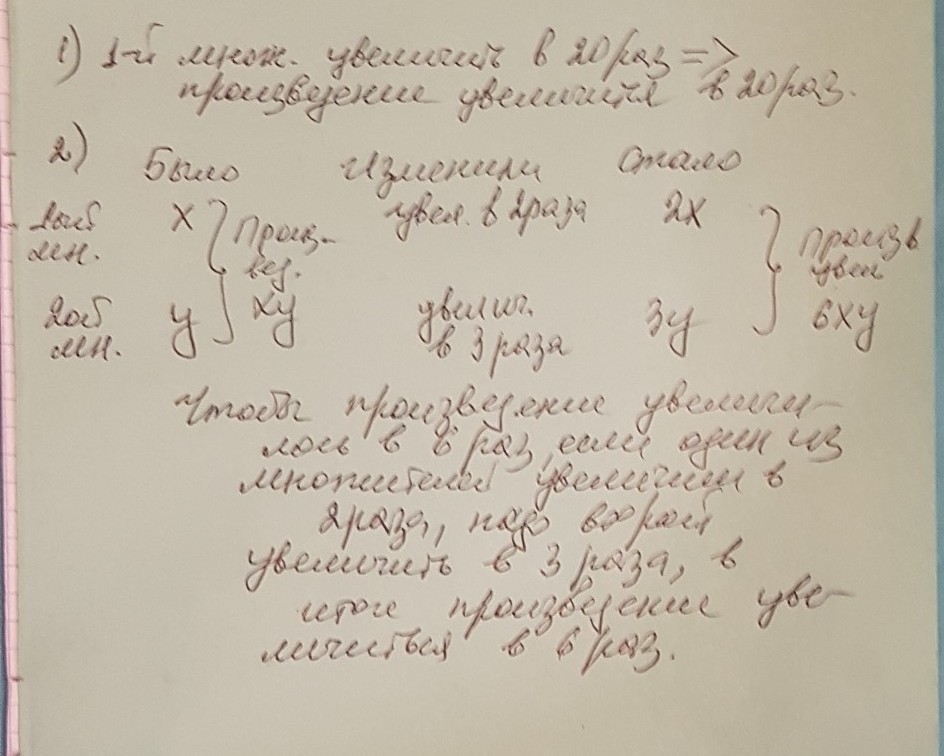 1) 1-й множ. увеличить в 20 раз =>
произведение увеличится в 20 раз.
2) Было Изменили Стало
1ый мн. X } Произ-вед. XY увел. в 2 раза 2X } произв увел 6XY
2ой мн. Y увелич. в 3 раза 3Y
Чтобы произведение увеличи-
лось в 6 раз, если один из
множителей увеличили в
2 раза, надо второй
увеличить в 3 раза, в
итоге произведение уве-
личиться в 6 раз.